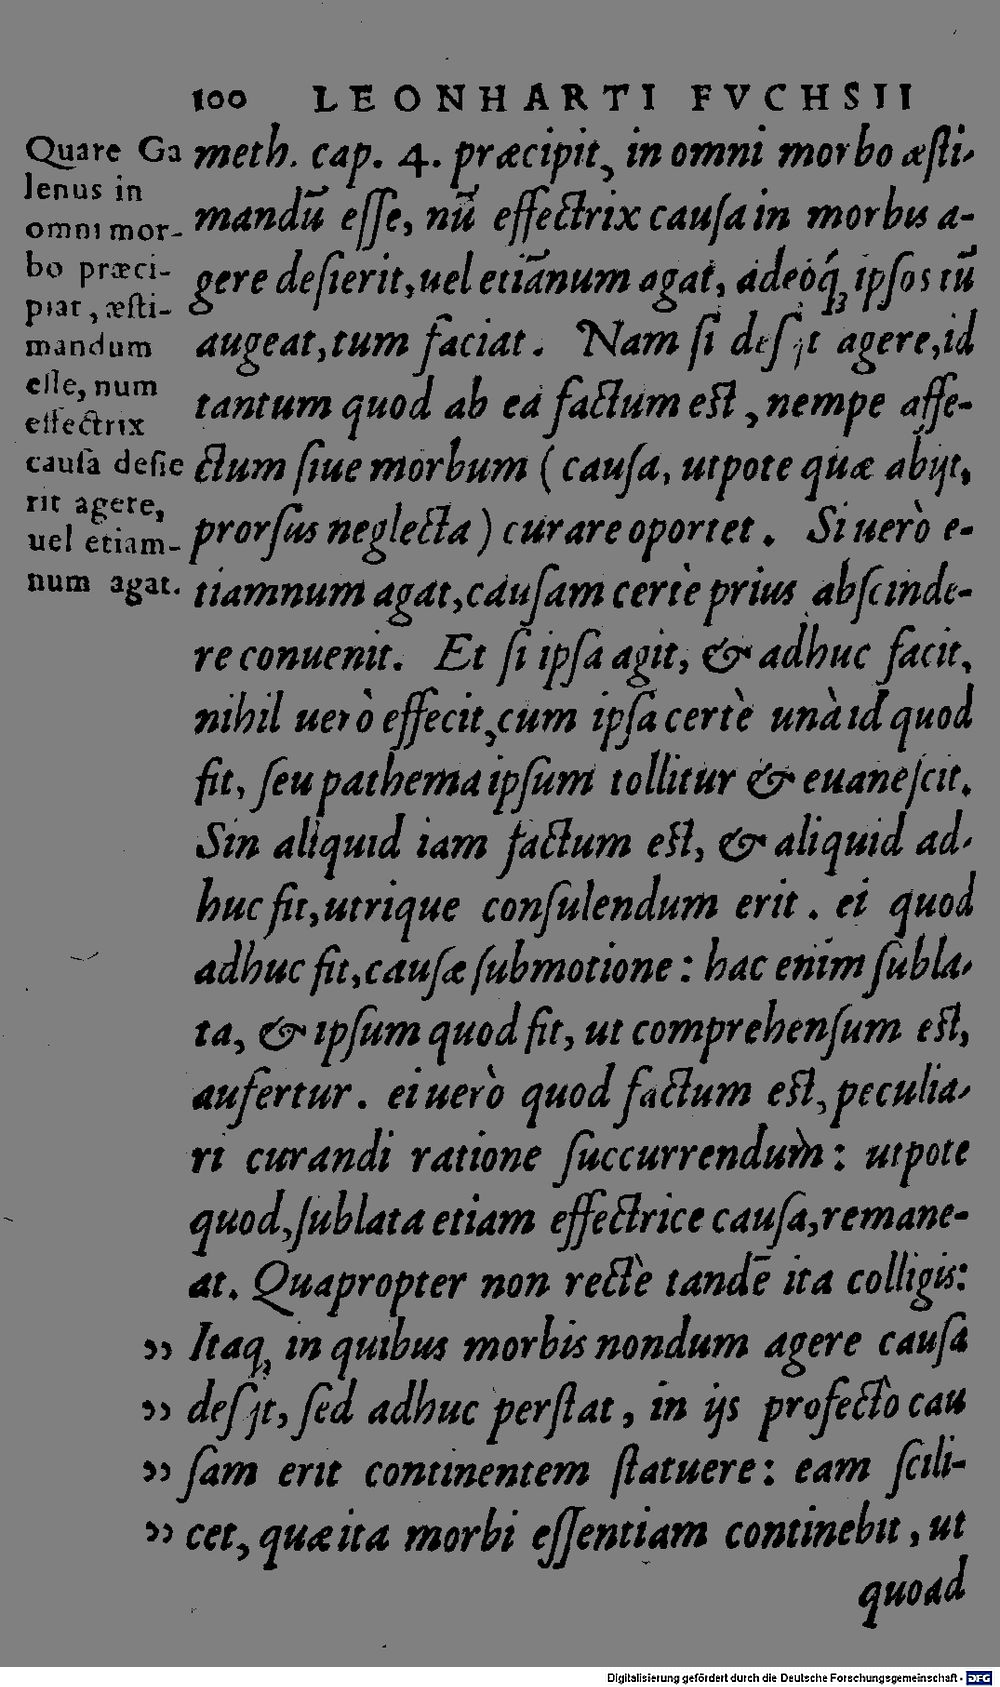 100 LEONHARTI FVCHSII
Quare Ga
lenus in
omni mor-
bo præci-
piat, æſti-
mandum
eſſe, num
effectrix
cauſa deſie
rit agere,
uel etiam-
num agat.
meth. cap. 4. præcipit, in omni morbo æſti-
mandū eſſe, nū effectrix cauſa in morbis a-
gere deſierit, uel etiānum agat, adeóq́ꝫ ipſos tū
augeat, tum faciat. Nam ſi deſijt agere, id
tantum quod ab ea factum eſt, nempe affe-
ctum ſiue morbum (cauſa, utpote quæ abijt,
prorſus neglecta) curare oportet. Si uerò e-
tiamnum agat, cauſam certè prius abſcinde-
re conuenit. Et ſi ipſa agit, & adhuc facit,
nihil uerò effecit, cum ipſa certè unà id quod
fit, ſeu pathema ipſum tollitur & euaneſcit.
Sin aliquid iam factum eſt, & aliquid ad-
huc fit, utrique conſulendum erit. ei quod
adhuc fit, cauſæ ſubmotione: hac enim ſubla-
ta, & ipſum quod fit, ut comprehenſum eſt,
aufertur. ei uerò quod factum eſt, peculia-
ri curandi ratione ſuccurrendum̀: utpote
quod, ſublata etiam effectrice cauſa, remane-
at. Quapropter non rectè tandē ita colligis:
„ Itaqꝫ in quibus morbis nondum agere cauſa
„ deſijt, ſed adhuc perſtat, in ijs profectò cau
„ ſam erit continentem ſtatuere: eam ſcili-
„ cet, quæ ita morbi eſſentiam continebit, ut
quoad
Digitalisierung gefördert durch die Deutsche Forschungsgemeinschaft - DFG